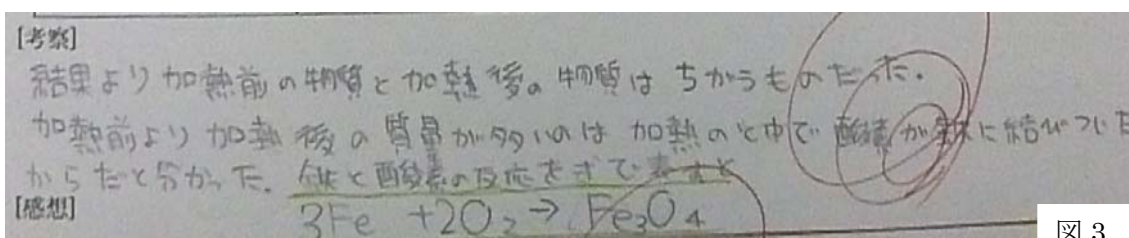 [考察]
結果より加熱前の物質と加熱後の物質はちがうものだった。
加熱前より加熱後の質量が多いのは加熱のと中で酸素が鉄に結びついた
からだと分かった。鉄と酸素の反応を式で表すと
[感想]
3Fe +2O₂→ Fe₃O₄
図3